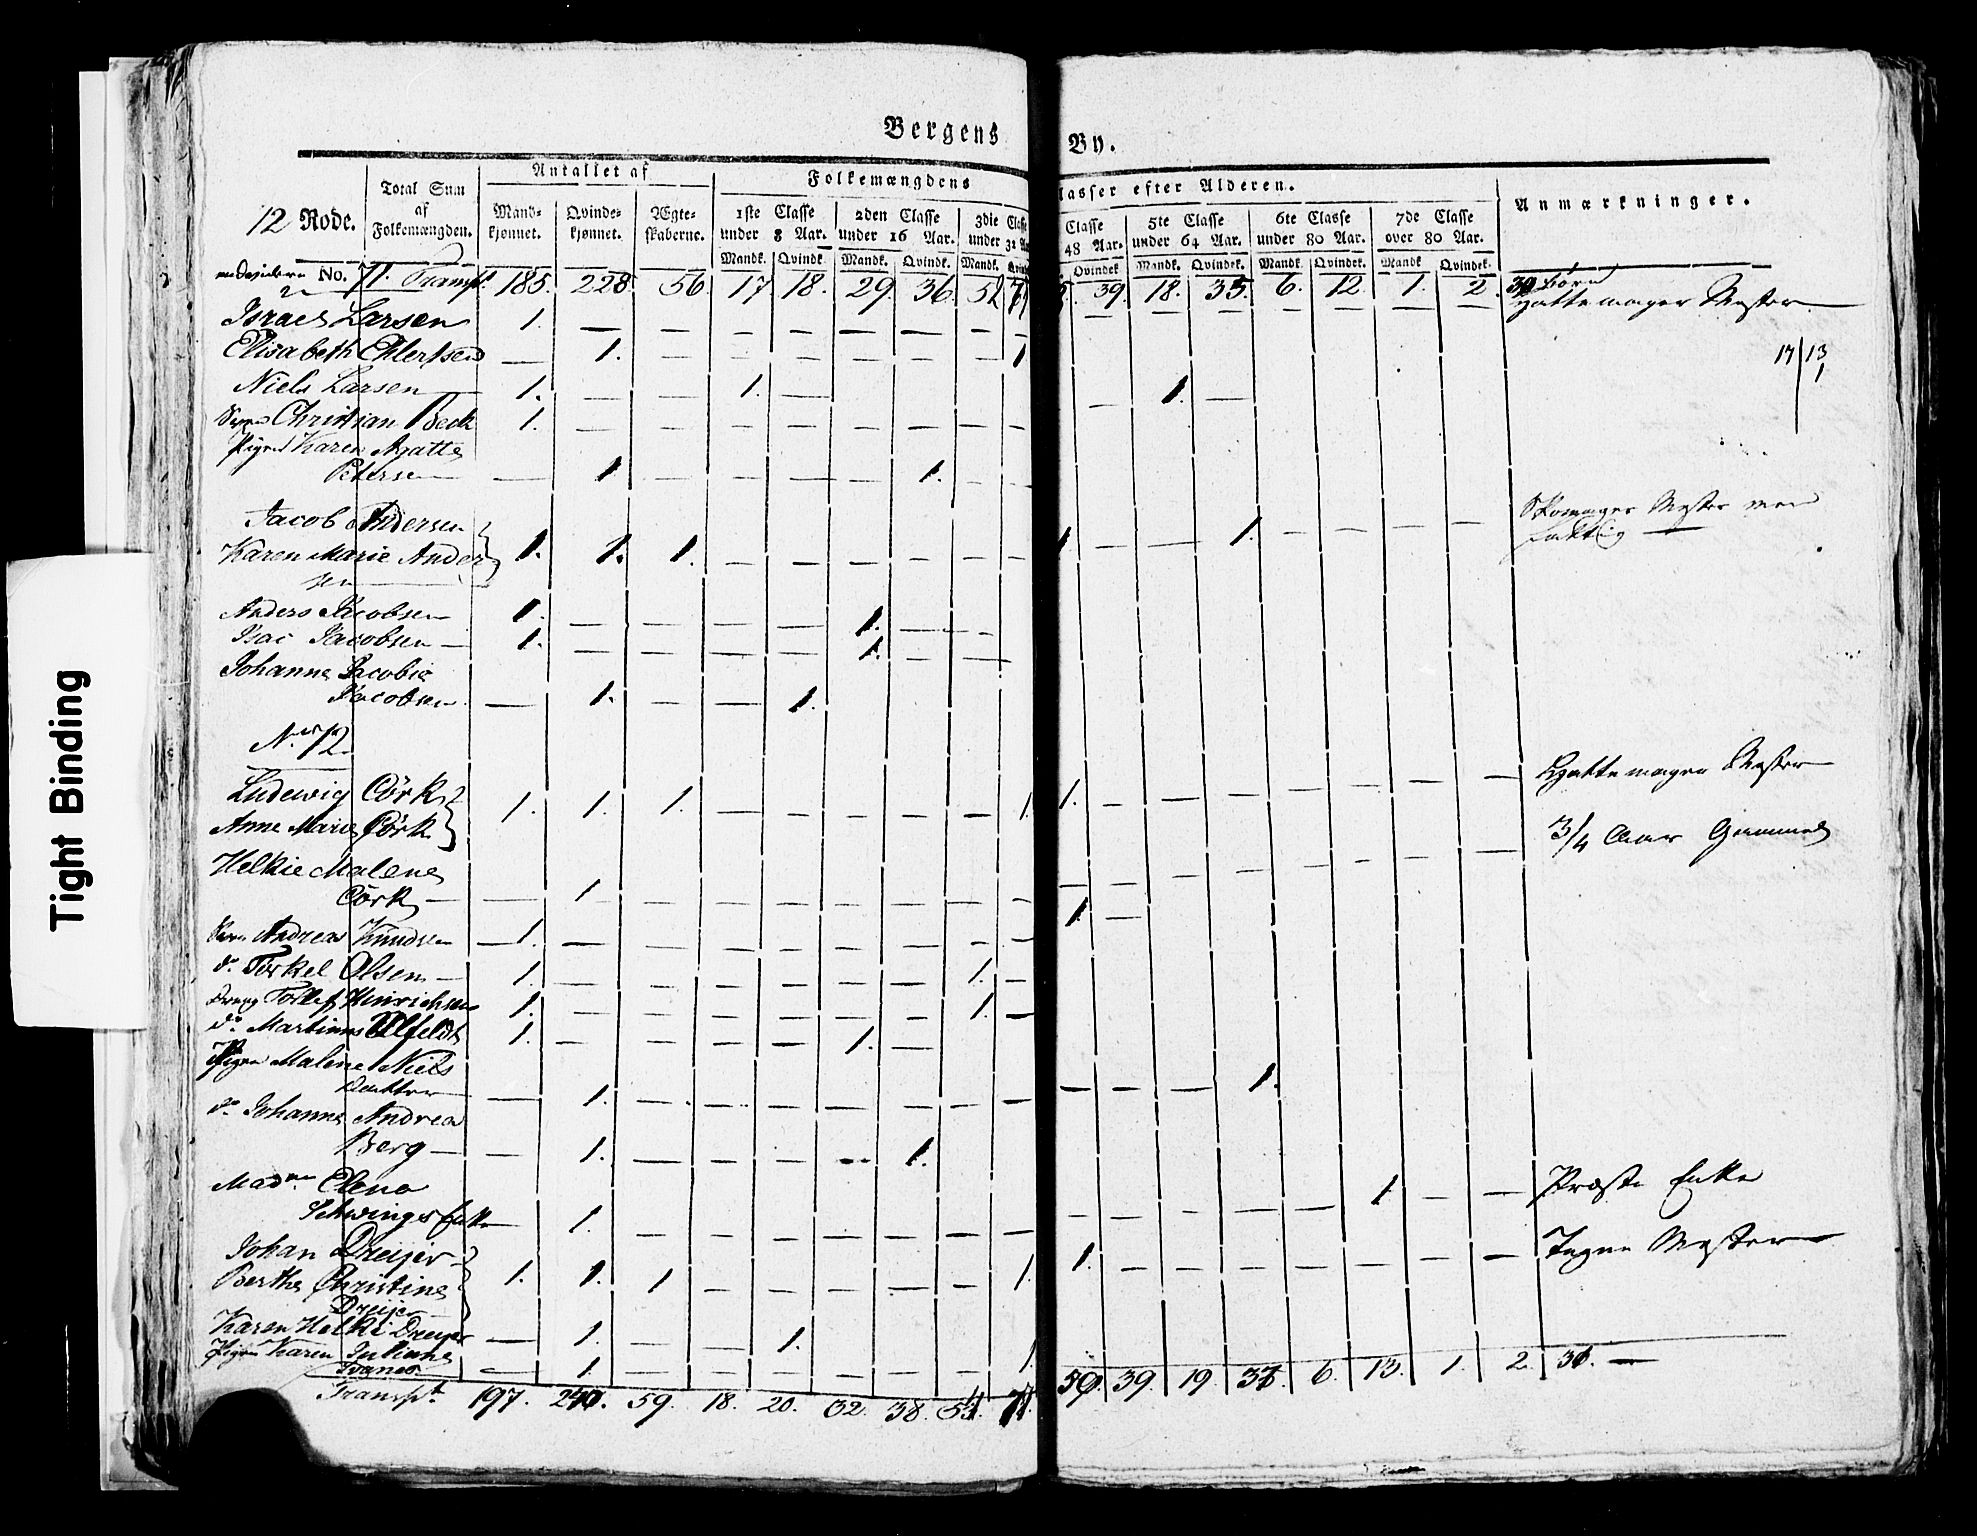 Bergens By.
12 Rode.
Total Sum af Folkemængden.
Antallet af
Mand-kjønnet. Qvinde-kjønnet. Ægte-skaberne.
Folkemængdens
lasser efter Alderen.
1ste Classe under 8 Aar. 2den Classe under 16 Aar. 3die Classe under 32
Classe 48 Aar. 5te Classe under 64 Aar. 6te Classe under 80 Aar. 7de Classe over 80 Aar.
Anmærkninger.
Mandk. Qvindk. Mandk. Qvindk. Mandk. Qvindek. Mandk. Qvindek. Mandk. Qvindek. Mandk. Qvindek.
No. 71. Transpt. 185. 228. 56. 17. 18. 29. 36. 39. 18. 35. 6. 12. 1. 2. 30 børn
Israel Larsen 1. — — — — — — — Hattemager Mester
Elisabeth Ehlertsen — 1. — — — — — — 1
17 | 13
1
Niels Larsen 1. — — 1. — — 1. —
Christian Beck 1. — — — — — — —
Pigen Karen Agatte
Petersen — 1 — — — — 1. —
Jacob Andersen Skomager Mester
Karen Marie Ander 1. 1. 1. — — — — — — 1 — — 1. — — — — fattig
sen
Anders Jacobsen 1. — — — — 1. — —
Isac Jacobsen 1. — — — — 1. — —
Johanne Jacobie
Jacobsen — 1. — — 1.
No. 72
Ludewig Cörk 1. 1. 1. — — — — — 1. 1. — — — — — — — Hattemager Mester
Anne Marie Cörk
3/4 Aar Gammel
Helkie Malene
Cörk — 1 — — — — — — — — — — — — — — —
Svend Andreas Knudsen — 1. — — — — — — — — 1. —
do. Torkel Olsen 1. — — — — — — 1. —
Dreng Tollef Hinrichsen 1. — — — — — — 1. —
do. Martinus Ulfeldt 1. — — — — 1. —
Pigen Malene Niels
Datter — 1. — — — — — — — — — — 1.
do. Johanne Andrea
Berg — — 1. — — — — 1.
Madme Elena
Schwings Enke — 1. — — — — — — — — — — — — 1 — — Præste Enke
Johan Dreyer
Berthe Christine 1. 1. 1 — — — — — 1. 1. — — — — — — —
Dreyer
Karen Helki Dreyer — 1. — — 1.
Pigen Karen Juliane — 1. — — — — — — 1
Transpt. 197. 59. 18. 20. 32. 38. 39. 19. 6. 13. 1. 2.
Tight Binding